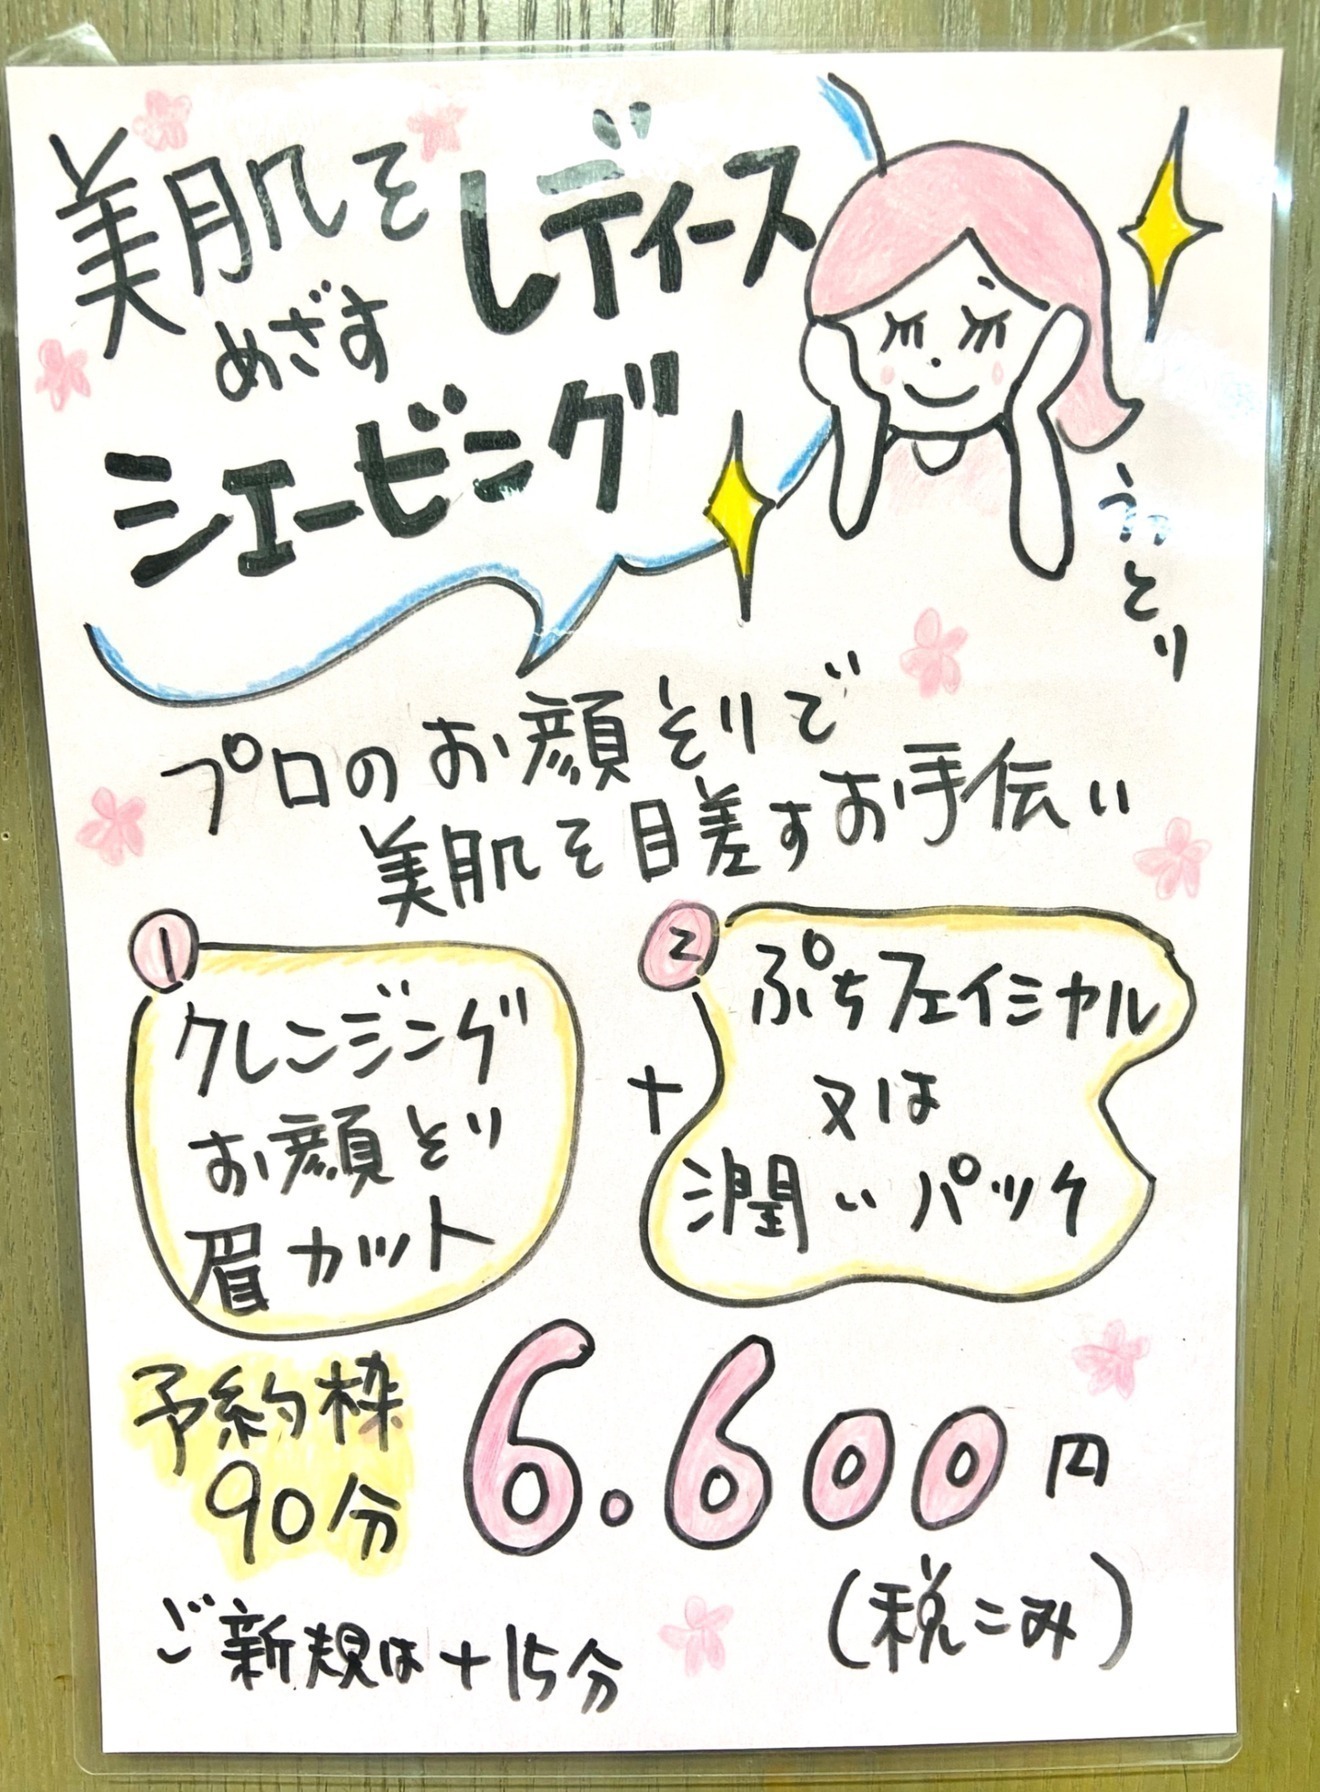 美肌を
めざす
レディース
シェービング
うっとり
プロのお顔そりで
美肌を目差すお手伝い
①
クレンジング
お顔そり
眉カット
+
②
ぷちフェイシャル
又は
潤いパック
予約枠
90分
6.600円
(税こみ)
ご新規は+15分